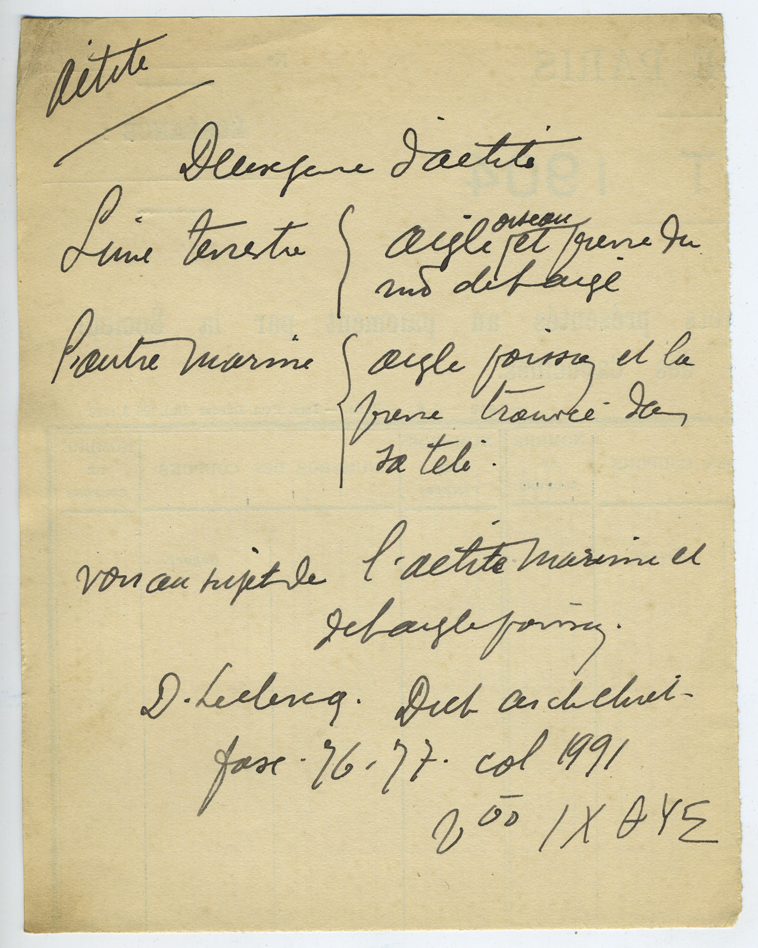 Aétite
Deux genre d'aetite
L'une terrestre { aigle oiseau et pierre du
nid de l'aigle
l'autre marine { aigle poisson et la
pierre trouvée dans
sa tete.
voir au sujet de l'aetite marine et
de l'aigle poisson.
D. Leclercq. Dict arch chret-
fasc. 76-77. col 1991
IX